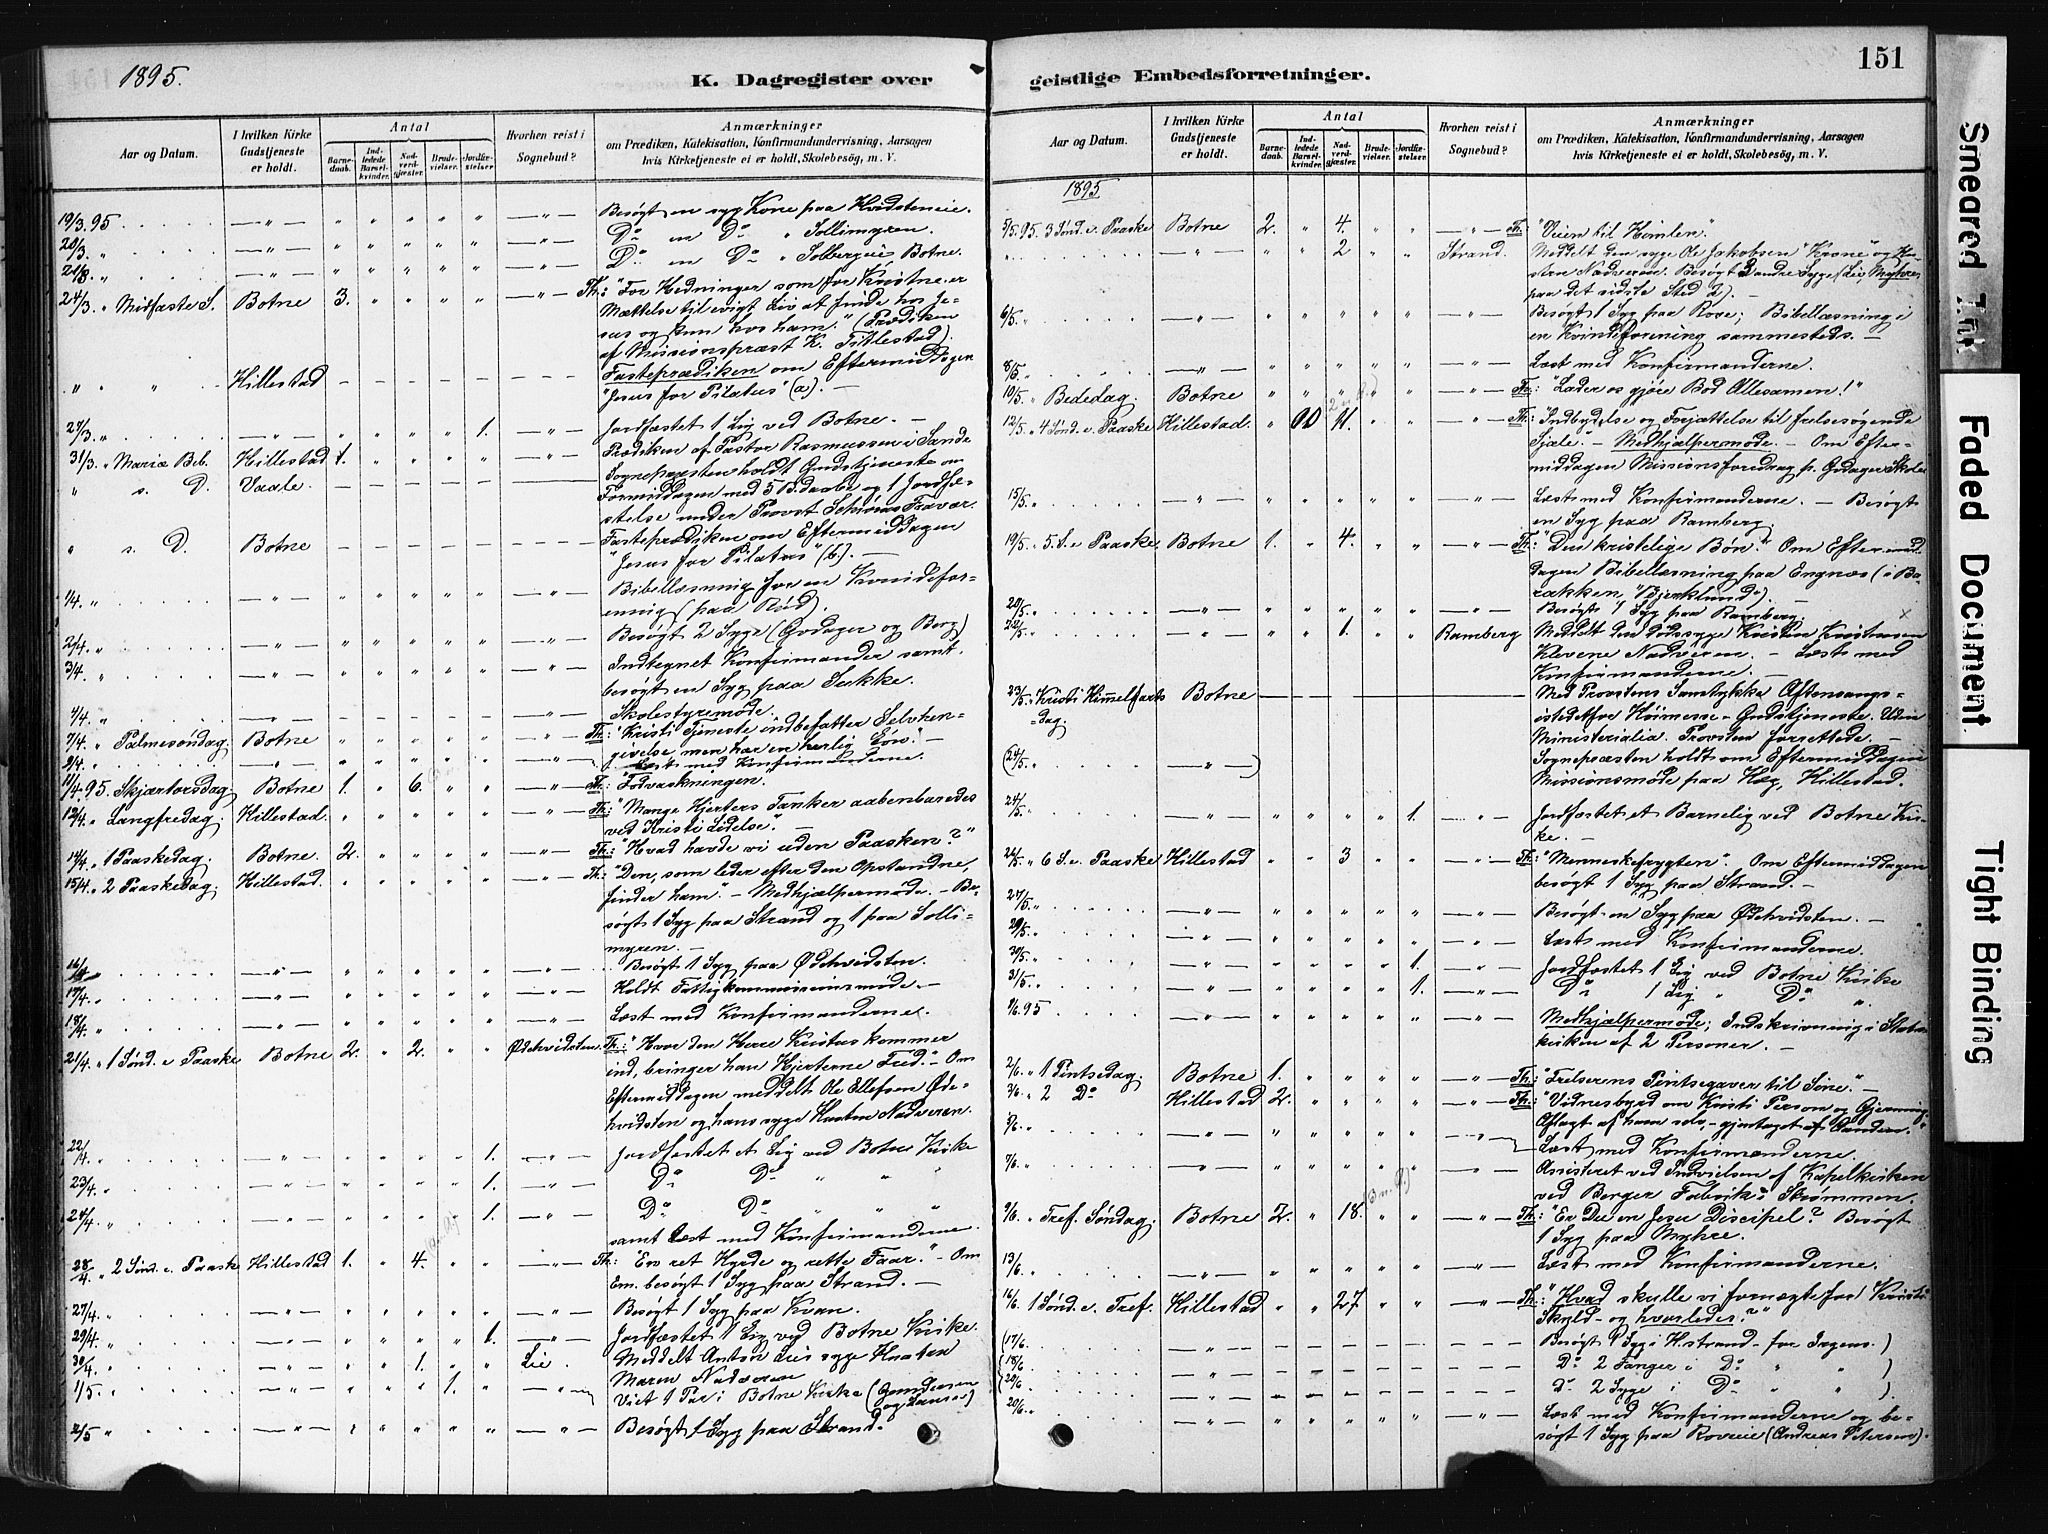 1895.
K. Dagregister over
Aar og Datum.
I hvilken Kirke Gudstjeneste er holdt.
Antal
Barnedaab.
Indledede Barselkvinder.
Nadverdgjæster.
Brudevielser.
Jordfæstelser.
Hvorhen reist i Sognebud?
Anmærkninger
om Prædiken, Katekisation, Konfirmandundervisning, Aarsagen
hvis Kirketjeneste ei er holdt, Skolebesøg, m. V.
19/3. 95 Besøgt en syg Kone paa Hvidsteneie.
20/3. " Do en Do " Sollimyren.
21/3 " Do en Do " Solbergeie Botne.
24/3 " Midfaste S. Botne 3. Th: "For Hedninger som for Kristne er
Mættelse til evigt Liv at finde hos Je-
sus og kun hos ham." (Prædiken
af Missionspræst K. Titlestad).
" " " Hillestad Fasteprædiken om Eftermiddagen
"Jesus for Pilatus" (a). —
27/3. " 1. Jordfæstet 1 Lig ved Botne. —
31/3. " Mariæ Beb. Hillestad 1. Prædiken af Pastor Rasmussen i Sande
" s. D. Vaale. Sognepræsten holdt Gudstjeneste om
Formiddagen med 5 B.daabe og 1 Jordfæ-
stelse under Provst Schiørns Fravær.
" s. D. Botne Fasteprædiken om Eftermiddagen
"Jesus for Pilatus" (b). —
1/4. " Bibellæsning for en Kvindefor-
ening (paa Rød).
2/4. " Besøgt 2 Syge (Grdager og Berg)
3/4. " Indtegnet Konfirmander samt
besøgt en Syg paa Sukke.
4/4. " Skolestyremøde.
7/4. " Palmesøndag. Botne Th: "Kristi Tjeneste indbefatter Selvhen-
givelse men har en herlig Løn." —
9/4. " Læst med Konfirmanderne.
11/4. 95. Skjærtorsdag. Botne 1. 6. Th: "Fodvaskningen."
12/4. " Langfredag. Hillestad. Th: "Mange Hjerters Tanker aabenbaredes
ved Kristi Lidelse." —
14/4. " 1 Paaskedag. Botne. 2. Th: "Hvad havde vi uden Paasken?"
15/4. " 2 Paaskedag. Hillestad. Th: "Den, som leder efter den Opstandne,
finder ham". — Medhjælpermøde. — Be-
søgt 1 Syg paa Strand og 1 paa Solli-
myren. —
16/4 Besøgt 1 Syg paa Ødehvidsten.
17/4. " Holdt Fattigkommissionsmøde. —
18/4. " Læst med Konfirmanderne.
21/4. " 1 Sønd. e Paaske Botne 2. 2. Ødehvidsten. Th: "Hvor den Herre Kristus kommer
ind, bringer han Hjerterne Fred." — Om
Eftermiddagen meddelt Ole Ellefsen Øde-
hvidsten og hans syge Hustru Nadveren.
22/4. " 1. Jordfæstet et Lig ved Botne Kirke
23/4. " 1. Do Do " "
24/4. " 1. Do Do " " "
samt Læst med Konfirmanderne.
28/4. " 2 Sønd. e. Paaske Hillestad 1. 4. Th: "En ret Hyrde og rette Faar." — Om
Em. besøgt 1 Syg paa Strand. —
27/4. " Besøgt 1 Syg paa Kvan.
29/4. " 1. Jordfæstet 1 Lig ved Botne Kirke.
30/4. " 1. Lie. Meddelt Anton Lies syge Hustru
Maren Nadveren
1/5. " 1. Viet 1 Par i Botne Kirke (
2/5 " Besøgt 1 Syg paa Strand.
151
geistlige Embedsforretninger.
Aar og Datum.
I hvilken Kirke Gudstjeneste er holdt.
Antal
Barnedaab.
Indledede Barselkvinder.
Nadverdgjæster.
Brudevielser.
Jordfæstelser.
Hvorhen reist i Sognebud?
Anmærkninger
om Prædiken, Katekisation, Konfirmandundervisning, Aarsagen
hvis Kirketjeneste ei er holdt, Skolebesøg, m. V.
1895.
5/5. 95. 3 Sønd. e. Paaske Botne 2. 4. Th: "Veien til Himlen".
" 2 Strand. Meddelt den syge Ole Jakobsen "Krone" og Hu-
stru Nadveren. Besøgt 3 andre Syge (Lie, Myhre,
paa det sidste Sted 2). —
6/5. " Besøgt 1 Syg paa Rove; Bibellæsning i
en Kvindeforening sammesteds. —
8/5. " Læst med Konfirmanderne.
10/5. " Bededag. Botne Th: "Lader os gjøre Bod Allesamen!"
12/5. " 4 Sønd. e. Paaske Hillestad. 11. Th: "Indbydelse og Forjættelse til frelsesøgende
Sjæle." — Medhjælpermøde. — Om Efter-
middagen Missionsforedrag p. Grdager Skole
15/5. " Læst med Konfirmanderne. — Besøgt
en Syg paa Ramberg.
19/5. " 5. S. e Paaske. Botne 1. 4. Th: "Den kristelige Bøn." Om Eftermid-
dagen Bibellæsning paa Engnæs (i Ba-
rakken, "Bjerklund"). —
20/5. " Besøgt 1 Syg paa Ramberg.
22/5. " 1. Ramberg Meddelt den dødssyge Kristen Kristensen
Klevene Nadveren. — Læst med
Konfirmanderne. —
23/5. " Kristi Himmelfarts Botne Med Provstens Samtykke Aftensangs-
dag. istedetfor Høimesse-Gudstjeneste. Uden
Ministerialia. Provsten forrettede. —
(24/5. " ) Sognepræsten holdt om Eftermiddagen
Missionsmøde paa Hæg, Hillestad.
24/5. " 1. Jordfæstet et Barnelig ved Botne Kir-
ke. —
26/5. " 6 S. e. Paaske Hillestad 3 Th: "Menneskefrygten". Om Eftermiddagen
besøgt 1 Syg paa Strand. —
27/5. " Besøgt en Syg paa Ødehvidsten. —
29/5. " Læst med Konfirmanderne.
30/5. " 1. Jordfæstet 1 Lig ved Botne Kirke
31/5. " 1. Do 1 Lig " Do "
1/6. 95 Medhjælpermøde; Indskrivning i Stats-
kirken af 2 Personer. —
2/6. " 1 Pintsedag. Botne 1. Th: "Frelserens Pintsegaver til Sine". —
3/6. " 2 Do Hillestad 2. Th: "Vidnesbyrd om Kristi Person og Gjerning
Aflagt af ham selv — gjentaget af Aanden."
5/6. " Læst med Konfirmanderne.
7/6. " Assisteret ved Indvielsen af Kapelkirken
ved Berger Fabrik i Strømmen.
9/6. " Tref. Søndag. Botne 2. 18. Th: "Er Du en Jesu Discipel"? Besøgt
1 Syg paa Myhre.
13/6. " Læst med Konfirmanderne.
16/6. " 1 Sønd. e. Tref. Hillestad 27 Th: "Hvad skulle vi fornægte for Kristi
Skyld — og hvorledes?"
(17/6. Besøgt 1 Syg i H.strand — for )
(18/6. Do 2 Fanger i Do " " )
(20/6. Do 2 Syge i Do " " ).
20/6. " Læst med Konfirmanderne og be-
søgt 1 Syg paa Roveeie (Andreas Petersen).
Smeared Ink
Faded Document
Tight Binding